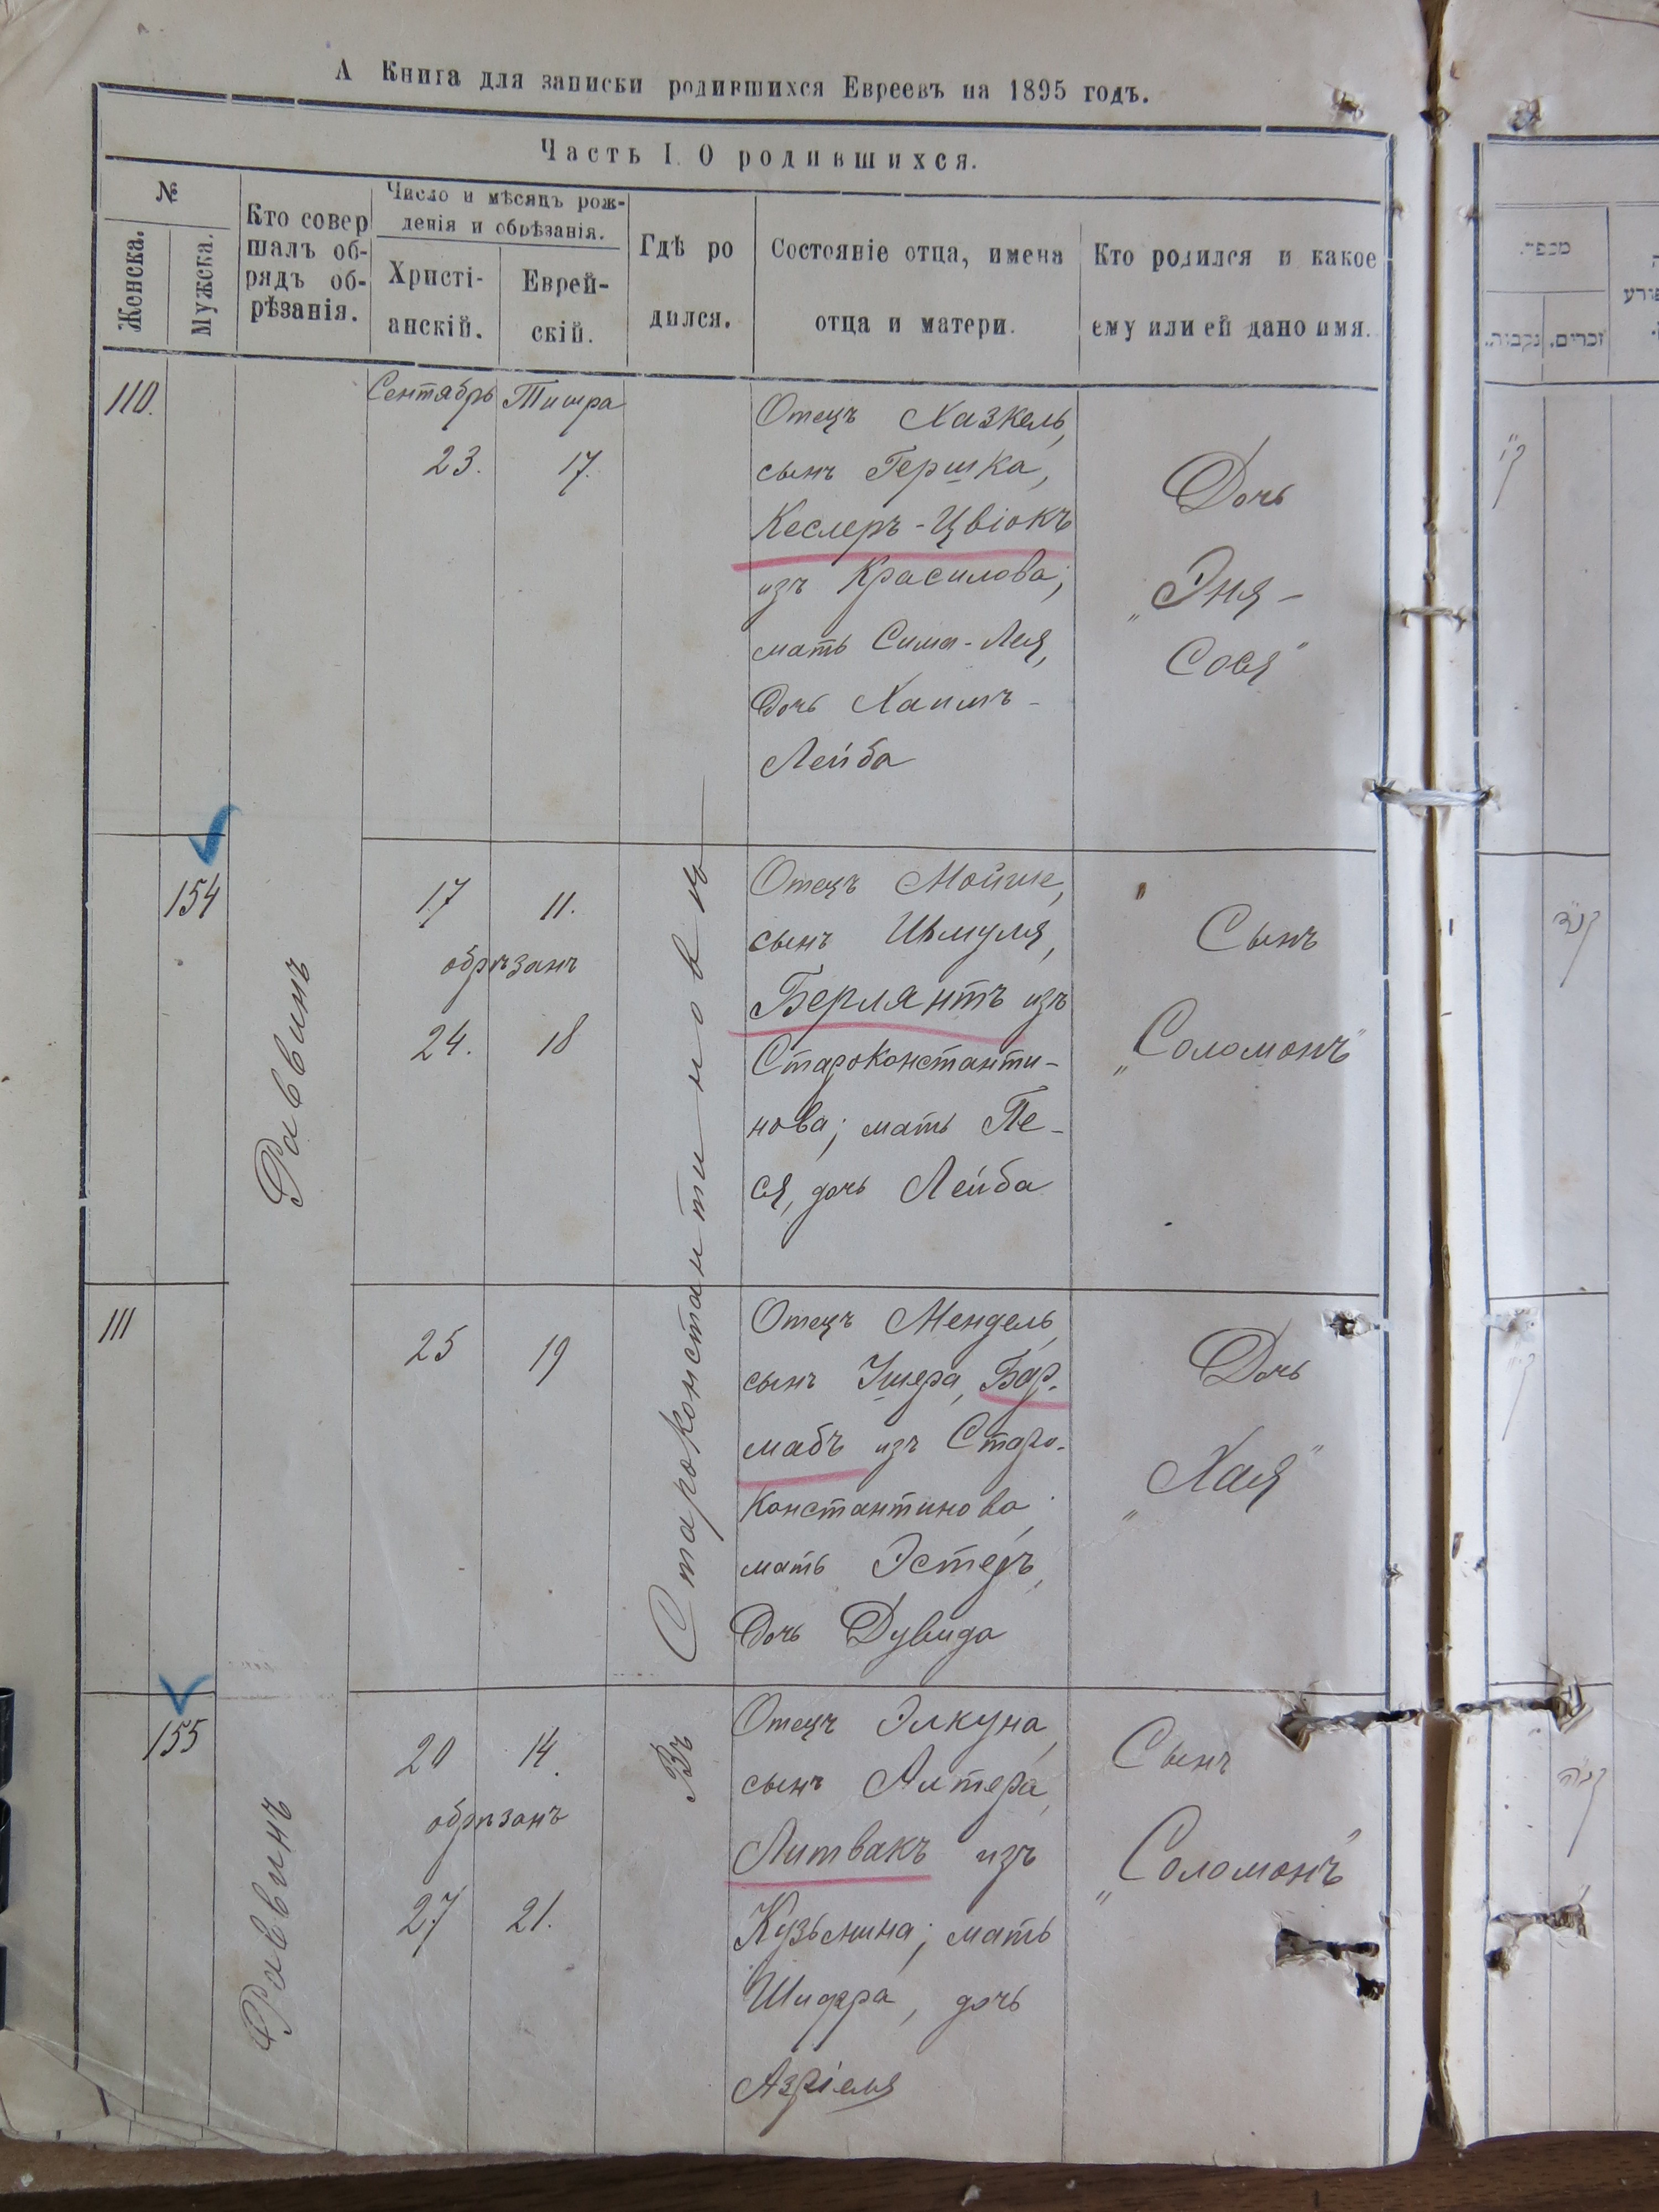 А Книга для записки родившихся Евреевъ на 1895 годъ.
Часть I. О родившихся.
№
Женска.
Мужска.
Кто совер
шалъ об-
рядъ об-
рѣзанія.
Число и мѣсяцъ рож-
денія и обрѣзанія.
Христі-
анскій.
Еврей-
скій.
Гдѣ ро
дился.
Состояніе отца, имена
отца и матери.
Кто родился и какое
ему или ей дано имя.
מספר
זכרים.
נקבות.
110.
Сентябрь Тишра
23. 17.
Отецъ Хазкель,
сынъ Гершка,
Кеслеръ-Цвіокъ
изъ Красилова;
мать Сима-Лея,
дочь Хаимъ-
Лейба
Дочь
„Эня-
Сося"
154
Раввинъ
17 11.
обрѣзанъ
24. 18
Въ Староконстантиновѣ
Отецъ Мойше,
сынъ Шмуля,
Берлянтъ изъ
Староконстанти-
нова; мать Пе-
ся, дочь Лейба
Сынъ
„Соломонъ"
111
25 19
Отецъ Мендель,
сынъ Ушера, Бар-
мабъ изъ Старо-
константинова;
мать Эстеръ,
дочь Дувида
Дочь
„Хая"
155
Раввинъ
20 14.
обрѣзанъ
27 21.
Отецъ Элкуна,
сынъ Алтера,
Литвакъ изъ
Кузьмина; мать
Шифра, дочь
Азріеля
Сынъ
„Соломонъ"